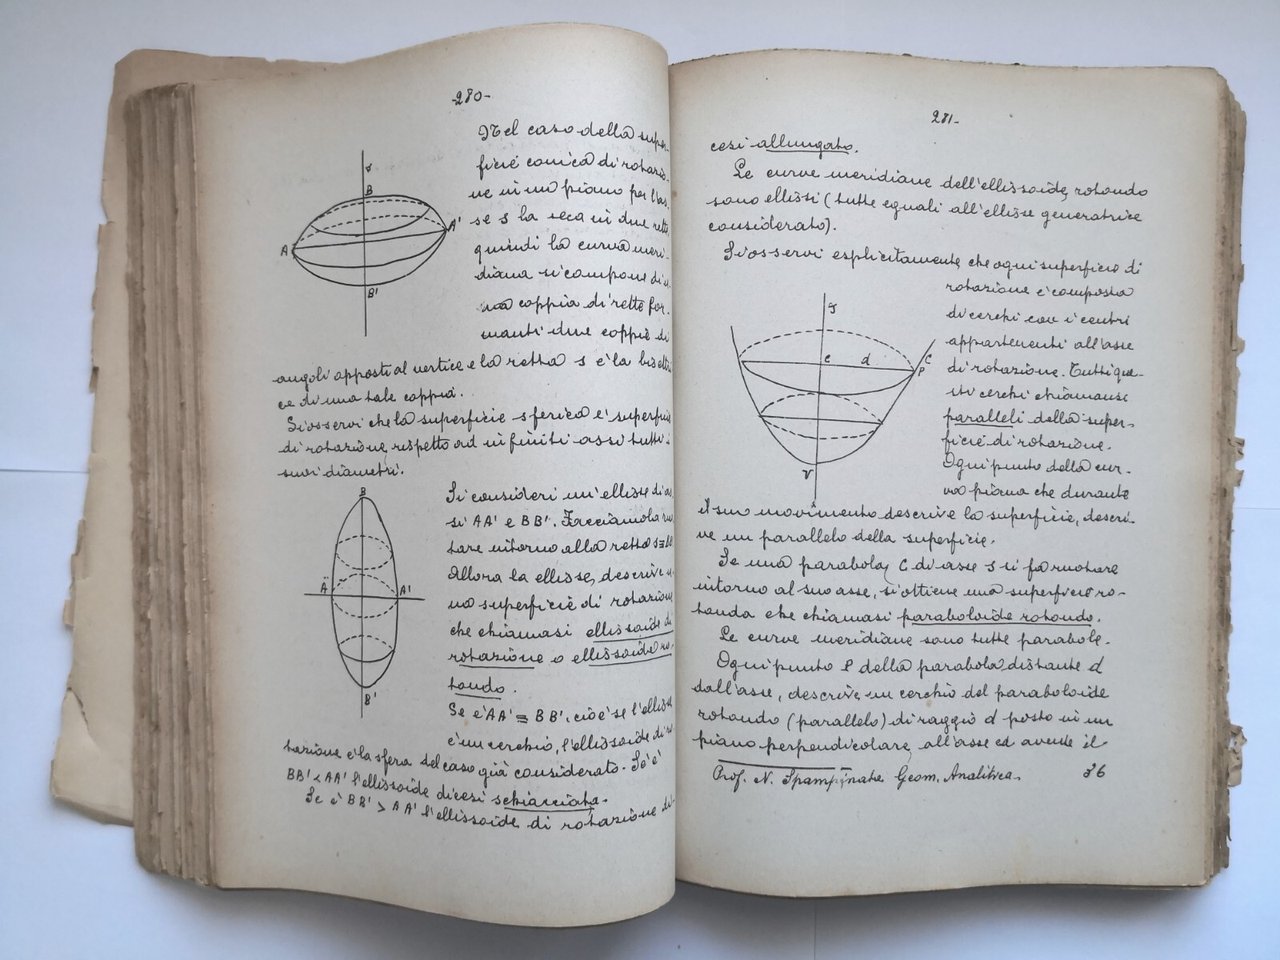 -280-
Nel caso della super-
ficie conica di rotazio-
ne un piano per l'as-
se s la seca in due rette
quindi la curva meri-
diana si compone di u-
na coppia di rette for-
manti due coppie di
angoli opposti al vertice e la retta s è la bisettri-
ce di una tale coppia.
Si osservi che la superficie sferica è superficie
di rotazione rispetto ad infiniti assi tutti i
suoi diametri.
s
B
A
A'
B'
Si consideri un'ellisse di as-
si AA' e BB'. Facciamola ruo-
tare intorno alla retta s≡BB'
Allora la ellisse, descrive u-
na superficie di rotazione
che chiamasi ellissoide di
rotazione o ellissoide ro-
tondo.
Se è AA' = BB', cioè se l'ellisse
è un cerchio, l'ellissoide di ro-
tazione è la sfera del caso già considerato. Se è
BB' < AA' l'ellissoide dicesi schiacciato.
Se è BB' > AA' l'ellissoide di rotazione di-
B
A
A'
B'
281-
cesi allungato.
Le curve meridiane dell'ellissoide, rotondo
sono ellissi (tutte eguali all'ellisse generatrice
considerato).
Si osservi esplicitamente, che ogni superficie di
rotazione è composta
di cerchi con i centri
appartenenti all'asse
di rotazione. Tutti que-
sti cerchi chiamansi
paralleli della super-
ficie di rotazione.
Ogni punto della cur-
va piana che durante
il suo movimento descrive la superficie, descri-
ve un parallelo della superficie.
s
c
d
C
P
V
Se una parabola, C di asse s si fa ruotare
intorno al suo asse, si ottiene una superficie ro-
tonda che chiamasi paraboloide rotondo.
Le curve meridiane sono tutte parabole.
Ogni punto P della parabola, distante d
dall'asse, descrive un cerchio del paraboloide
rotondo (parallelo) di raggio d posto in un
piano perpendicolare, all'asse ed avente il
Prof. N. Spampinato Geom. Analitica. 36